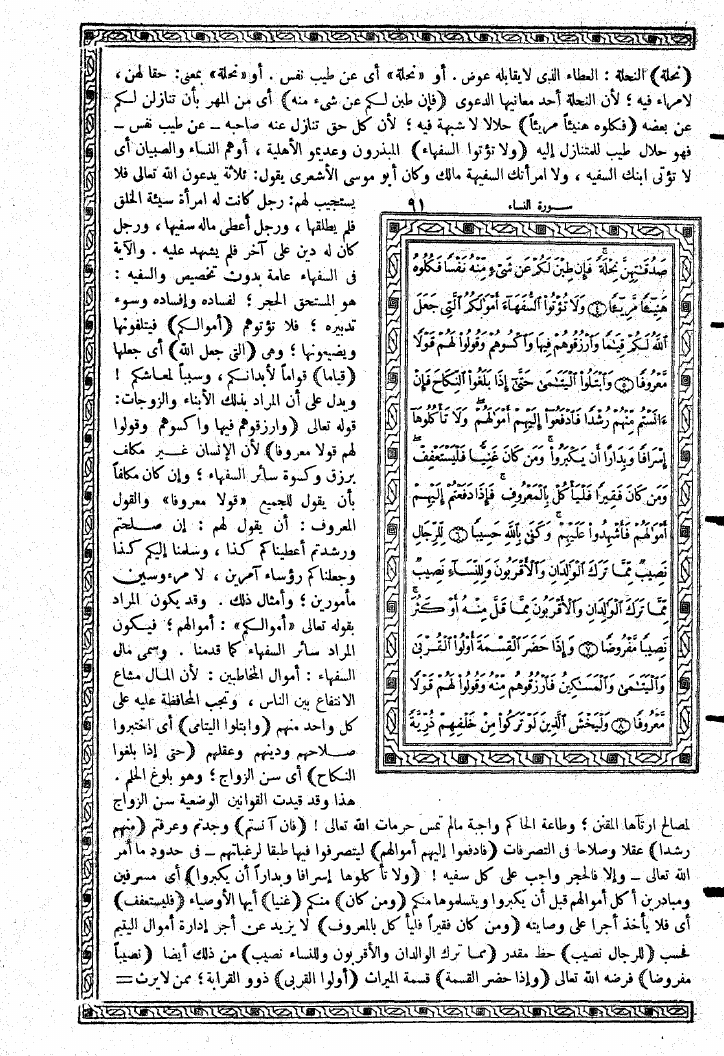 (نحلة) النحلة : العطاء الذى لايقابله عوض . أو «نحلة» أى عن طيب نفس . أو «نحلة» بمعنى : حقا لهن ،
لامراء فيه ؛ لأن النحلة أحد معانيها الدعوى (فإن طبن لكم عن شىء منه) أى من المهر بأن تنازلن لكم
عن بعضه (فكلوه هنيئاً مريئاً) حلالا لا شبهة فيه ؛ لأن كل حق تنازل عنه صاحبه – عن طيب نفس –
فهو حلال طيب للمتنازل إليه (ولا تؤتوا السفهاء) المبذرون وعديمو الأهلية ، أوهم النساء والصبيان أى
لا تؤتى ابنك السفيه ، ولا امرأتك السفيهة مالك وكان أبو موسى الأشعرى يقول : ثلاثة يدعون الله تعالى فلا
يستجيب لهم : رجل كانت له امرأة سيئة الخلق
فلم يطلقها ، ورجل أعطى ماله سفيها ، ورجل
كان له دين على آخر فلم يشهد عليه . والآية
فى السفهاء عامة بدون تخصيص والسفيه :
هو المستحق الحجر ؛ لفساده وإفساده وسوء
تدبيره ؛ فلا تؤتوهم (أموالكم) فيتلفونها
ويضيعونها ؛ وهى (التى جعل الله) أى جعلها
(قياما) قواماً لأبدانكم ، وسبباً لمعاشكم !
ويدل على أن المراد بذلك الأبناء والزوجات :
قوله تعالى (وارزقوهم فيها واكسوهم وقولوا
لهم قولا معروفا) لأن الإنسان غير مكلف
برزق وكسوة سائر السفهاء ؛ وإن كان مكلفاً
بأن يقول للجميع «قولا معروفا» والقول
المعروف : أن يقول لهم : إن صلحتم
ورشدتم أعطيناكم كذا ، وسلمنا إليكم كذا
وجعلناكم رؤساء آمرين ، لا مرءوسين
مأمورين ؛ وأمثال ذلك . وقد يكون المراد
بقوله تعالى «أموالكم» : أموالهم ؛ فيكون
المراد سائر السفهاء كما قدمنا . وسمى مال
السفهاء : أموال المخاطبين : لأن المال مشاع
الانتفاع بين الناس ، وتجب المحافظة عليه على
كل واحد منهم (وابتلوا اليتامى) أى اختبروا
صلاحهم ودينهم وعقلهم (حتى إذا بلغوا
النكاح) أى سن الزواج ؛ وهو بلوغ الحلم .
هذا وقد قيدت القوانين الوضعية سن الزواج
سورة النساء ٩١
صَدُقَٰتِهِنَّ نِحْلَةً ۚ فَإِن طِبْنَ لَكُمْ عَن شَىْءٍ مِّنْهُ نَفْسًا فَكُلُوهُ
هَنِيٓـًٔا مَّرِيٓـًٔا ﴿٤﴾ وَلَا تُؤْتُوا۟ ٱلسُّفَهَآءَ أَمْوَٰلَكُمُ ٱلَّتِى جَعَلَ
ٱللَّهُ لَكُمْ قِيَٰمًا وَٱرْزُقُوهُمْ فِيهَا وَٱكْسُوهُمْ وَقُولُوا۟ لَهُمْ قَوْلًا
مَّعْرُوفًا ﴿٥﴾ وَٱبْتَلُوا۟ ٱلْيَتَٰمَىٰ حَتَّىٰٓ إِذَا بَلَغُوا۟ ٱلنِّكَاحَ فَإِنْ
ءَانَسْتُم مِّنْهُمْ رُشْدًا فَٱدْفَعُوٓا۟ إِلَيْهِمْ أَمْوَٰلَهُمْ ۖ وَلَا تَأْكُلُوهَآ
إِسْرَافًا وَبِدَارًا أَن يَكْبَرُوا۟ ۚ وَمَن كَانَ غَنِيًّا فَلْيَسْتَعْفِفْ ۖ
وَمَن كَانَ فَقِيرًا فَلْيَأْكُلْ بِٱلْمَعْرُوفِ ۚ فَإِذَا دَفَعْتُمْ إِلَيْهِمْ
أَمْوَٰلَهُمْ فَأَشْهِدُوا۟ عَلَيْهِمْ ۚ وَكَفَىٰ بِٱللَّهِ حَسِيبًا ﴿٦﴾ لِّلرِّجَالِ
نَصِيبٌ مِّمَّا تَرَكَ ٱلْوَٰلِدَانِ وَٱلْأَقْرَبُونَ وَلِلنِّسَآءِ نَصِيبٌ
مِّمَّا تَرَكَ ٱلْوَٰلِدَانِ وَٱلْأَقْرَبُونَ مِمَّا قَلَّ مِنْهُ أَوْ كَثُرَ ۚ
نَصِيبًا مَّفْرُوضًا ﴿٧﴾ وَإِذَا حَضَرَ ٱلْقِسْمَةَ أُو۟لُوا۟ ٱلْقُرْبَىٰ
وَٱلْيَتَٰمَىٰ وَٱلْمَسَٰكِينُ فَٱرْزُقُوهُم مِّنْهُ وَقُولُوا۟ لَهُمْ قَوْلًا
مَّعْرُوفًا ﴿٨﴾ وَلْيَخْشَ ٱلَّذِينَ لَوْ تَرَكُوا۟ مِنْ خَلْفِهِمْ ذُرِّيَّةً
لمصالح ارتآها المقنن ؛ وطاعة الحاكم واجبة مالم تمس حرمات الله تعالى ! (فان آنستم) وجدتم وعرفتم (منهم
رشدا) عقلا وصلاحا فى التصرفات (فادفعوا إليهم أموالهم) ليتصرفوا فيها طبقا لرغباتهم – فى حدود ما أمر
الله تعالى – وإلا فالحجر واجب على كل سفيه ! (ولا تأكلوها إسرافا وبداراً أن يكبروا) أى مسرفين
ومبادرين أكل أموالهم قبل أن يكبروا ويتسلموها منكم (ومن كان) منكم (غنيا) أيها الأوصياء (فليستعفف)
أى فلا يأخذ أجرا على وصايته (ومن كان فقيراً فليأكل بالمعروف) لا يزيد عن أجر إدارة أموال اليتيم
فحسب (للرجال نصيب) حظ مقدر (مما ترك الوالدان والأقربون وللنساء نصيب) من ذلك أيضا (نصيباً
مفروضا) فرضه الله تعالى (وإذا حضر القسمة) قسمة الميراث (أولوا القربى) ذوو القرابة ؛ ممن لايرث =